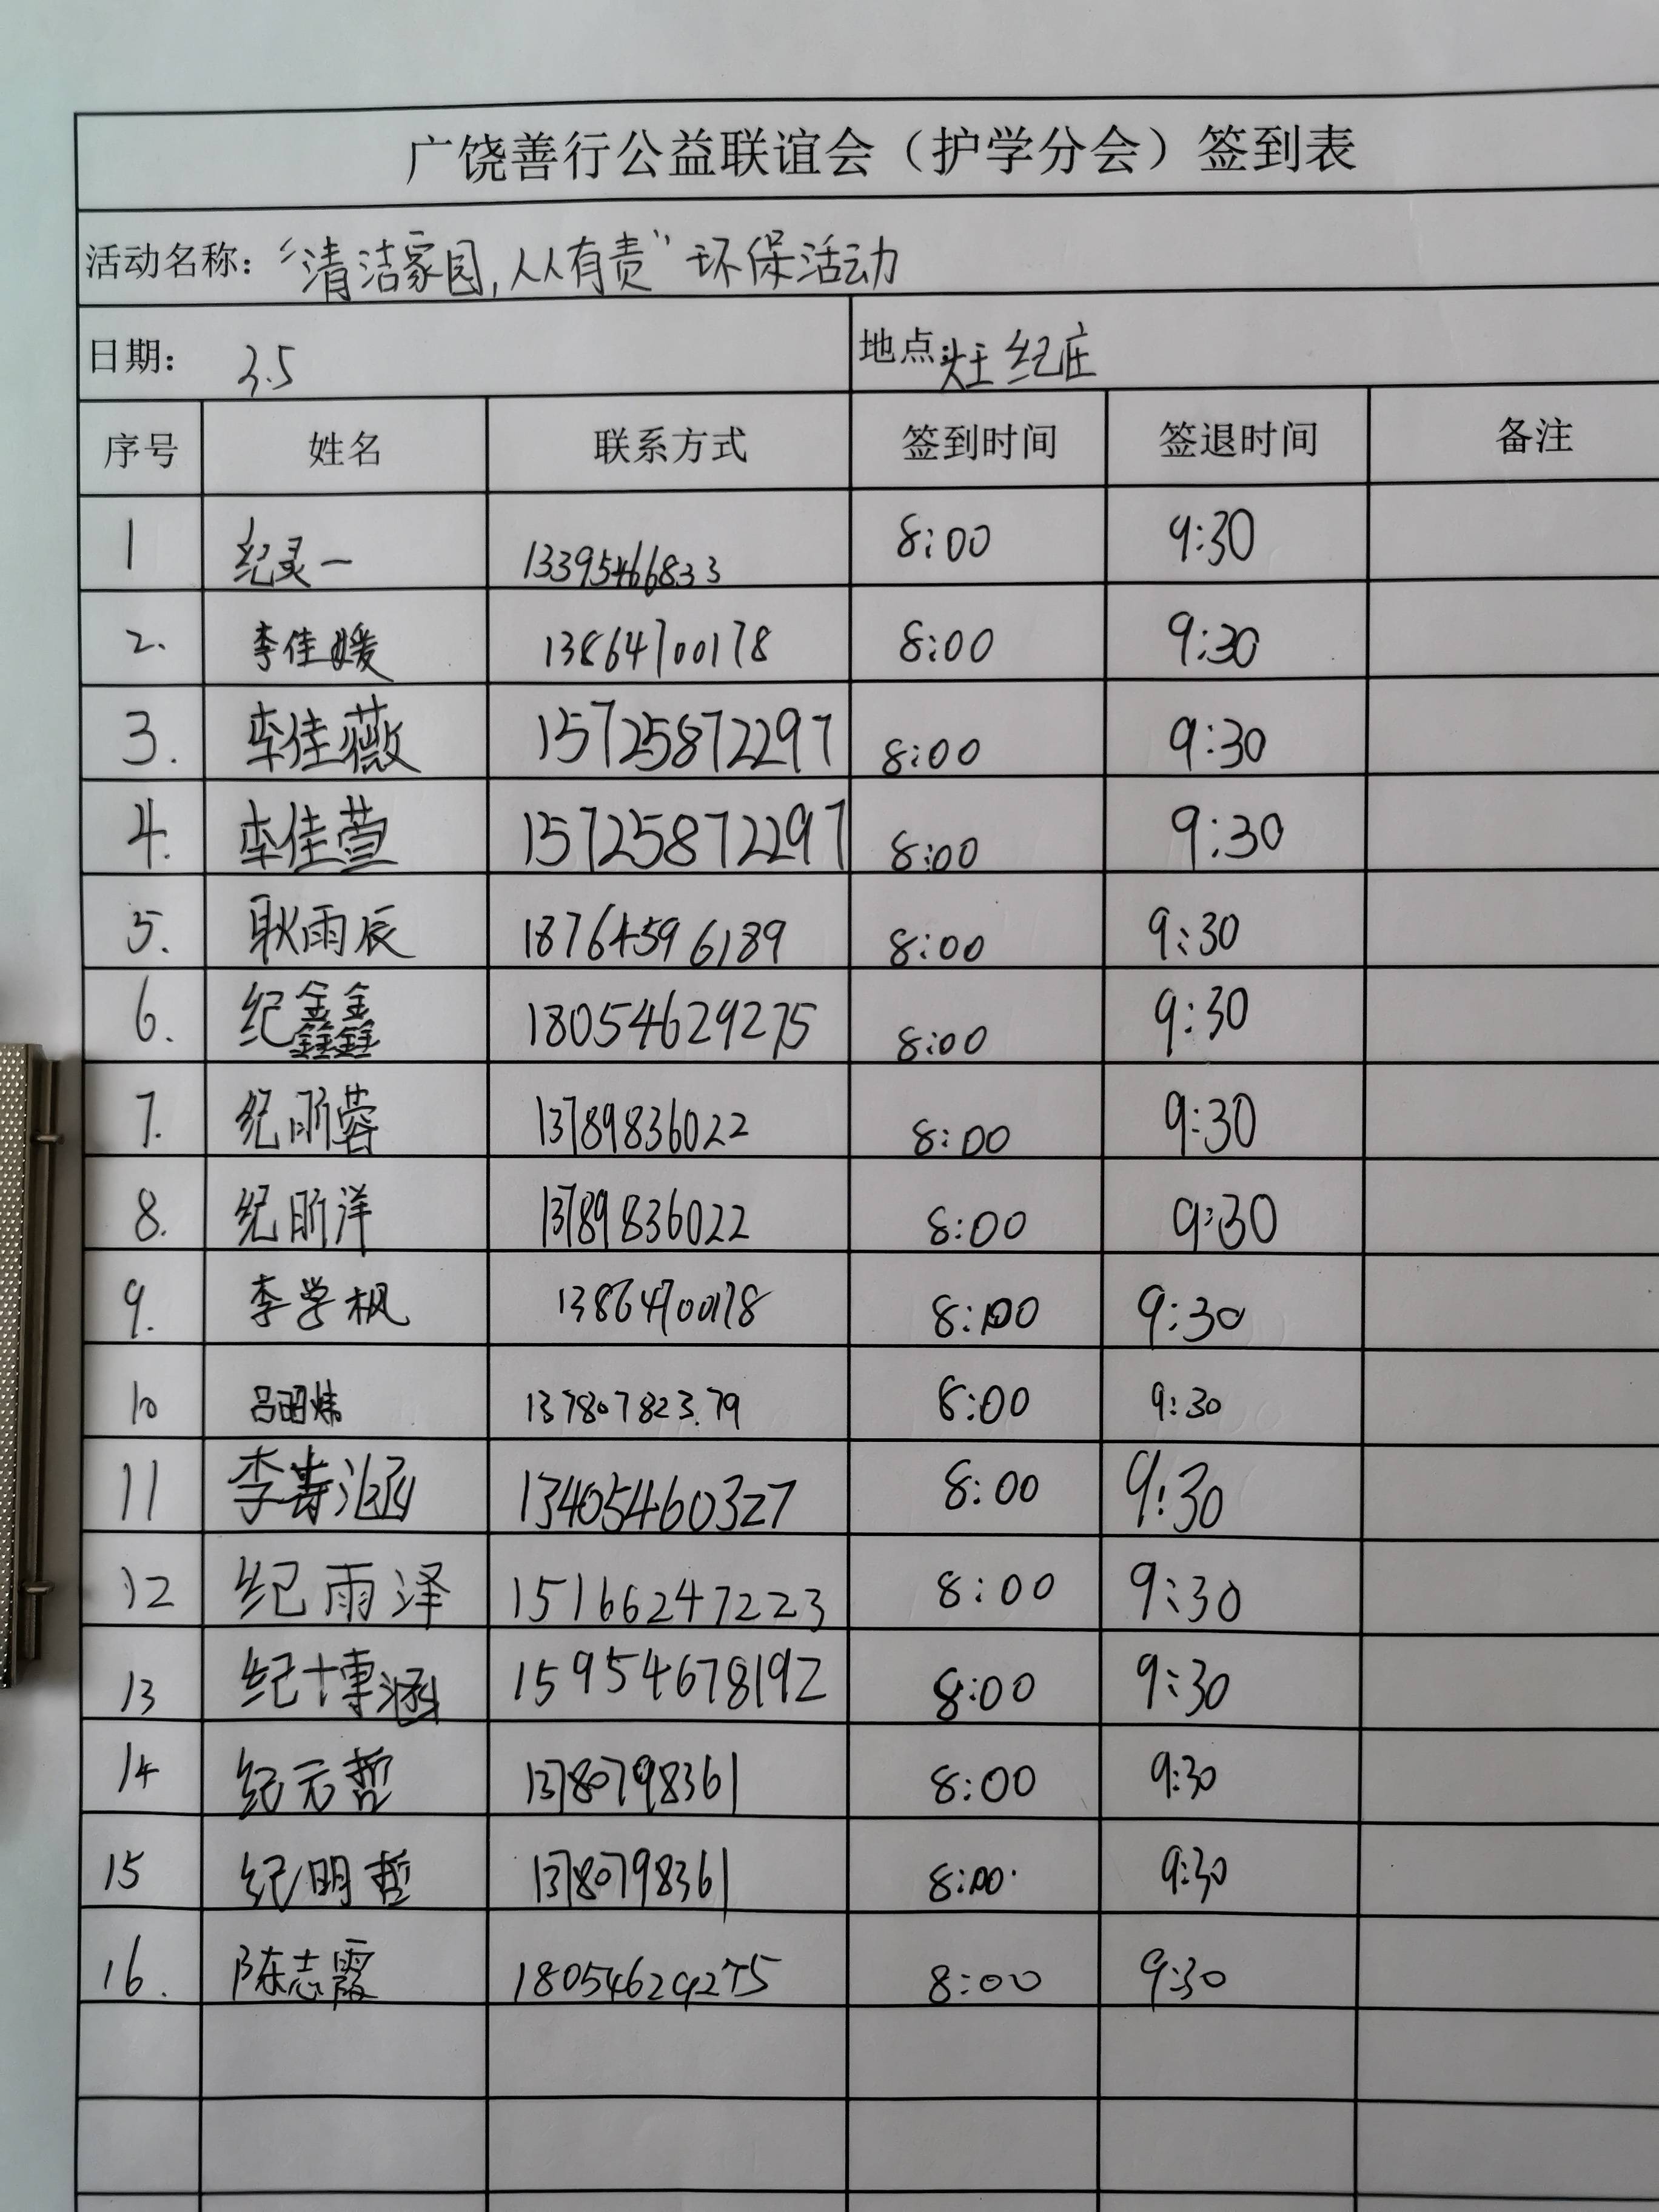 广饶善行公益联谊会（护学分会）签到表
活动名称：“清洁家园，人人有责”环保活动
日期： 3.5 地点：灶纪庄
序号 姓名 联系方式 签到时间 签退时间 备注
1 纪灵一 13395466833 8:00 9:30
2. 李佳媛 13864700178 8:00 9:30
3. 李佳薇 15725872297 8:00 9:30
4. 李佳萱 15725872297 8:00 9:30
5. 耿雨辰 18764596189 8:00 9:30
6. 纪鑫鑫 18054629275 8:00 9:30
7. 纪昕蓉 13789836022 8:00 9:30
8. 纪昕洋 13789836022 8:00 9:30
9. 李学枫 13864700178 8:00 9:30
10 吕昭炜 13780782379 8:00 9:30
11 李涵 13405460327 8:00 9:30
12 纪雨泽 15166247223 8:00 9:30
13 纪博涵 15954678192 8:00 9:30
14 纪元哲 13780798361 8:00 9:30
15 纪明哲 13780798361 8:00 9:30
16. 陈志霞 18054629275 8:00 9:30